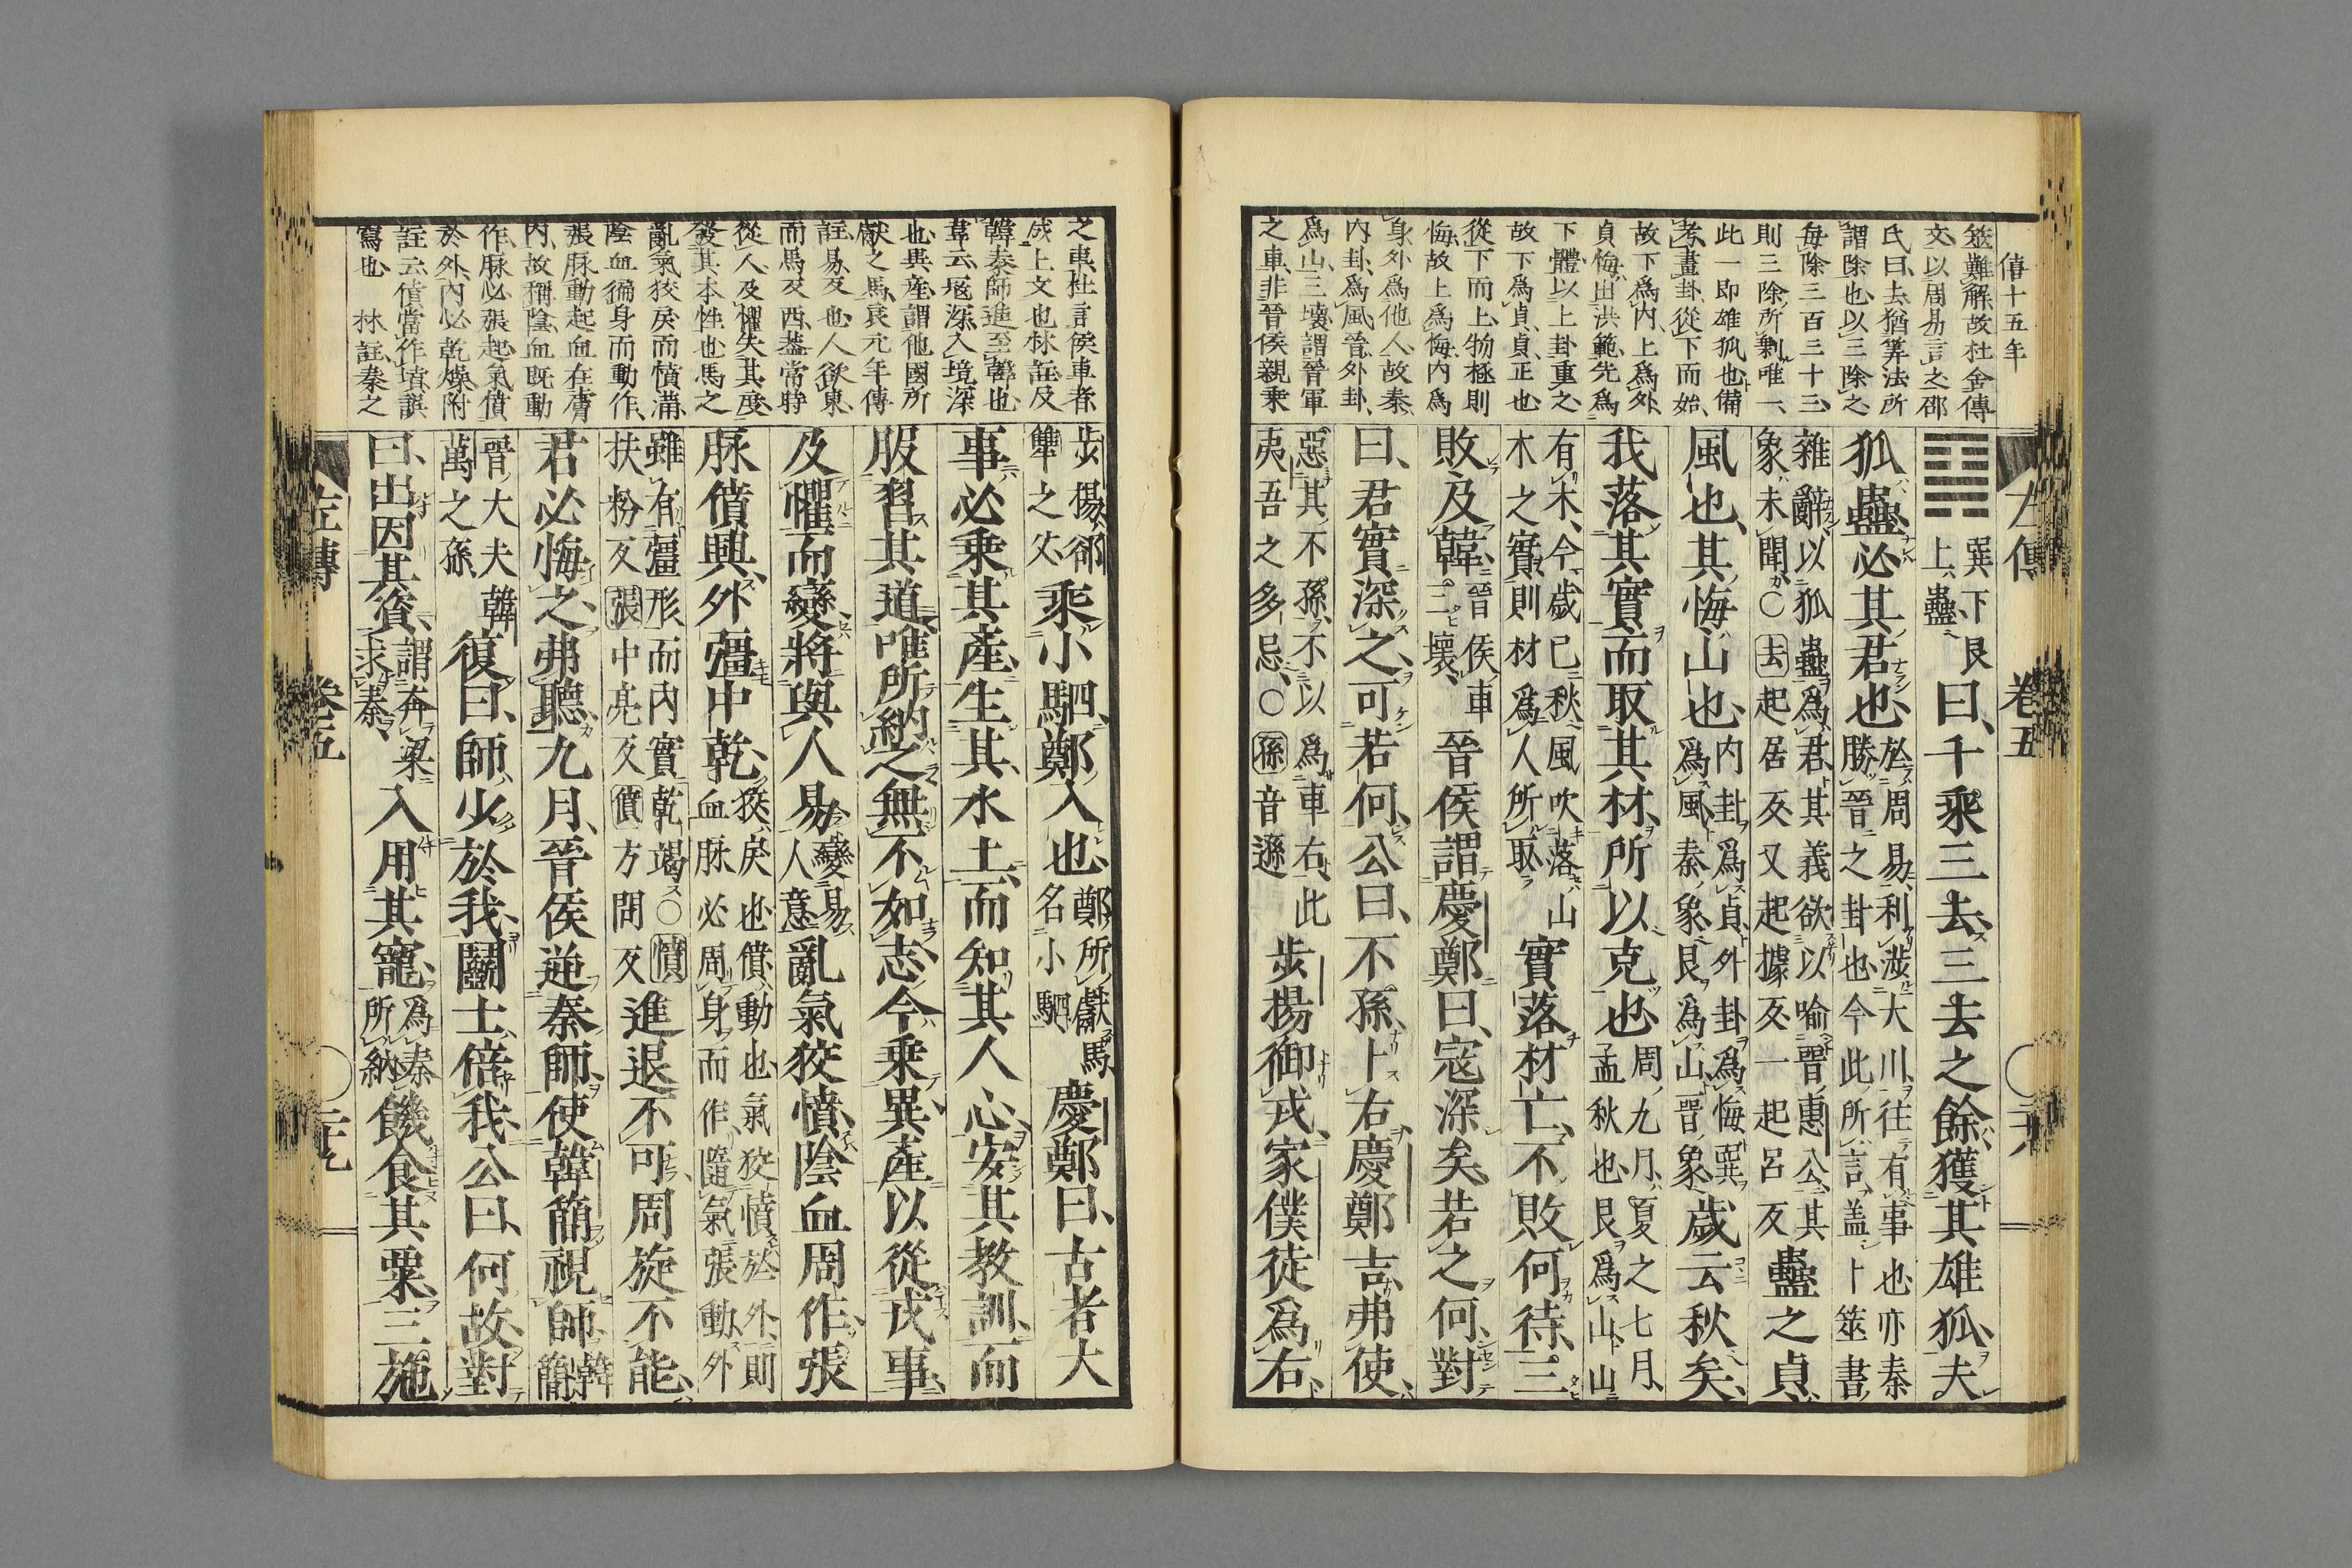 僖十五年
左傳 卷五
筮難解故杜舍傳
文以周易言之邵
氏曰去猶筭法所
謂除也以三除之
每除三百三十三
則三除所剩唯一
此一即雄狐也備
考畫卦從下而始
故下爲内上爲外
貞悔出洪範先爲
下體以上卦重之
故下爲貞貞正也
從下而上物極則
悔故上爲悔内爲
身外爲他人故秦
内卦爲風晉外卦
爲山三壞謂晉軍
之車非晉侯親乗
巽下艮上蠱曰、千乘三去、三去之餘、獲其雄狐、夫
狐蠱、必其君也、於周易、利渉大川、往有事也、亦秦勝晉之卦也、今此所言、盖卜筮書
雜辭、以狐蠱爲君、其義欲以喻晉惠公、其象未聞、〇去起居反又起據反一起呂反蠱之貞、
風也、其悔、山也、内卦爲貞、外卦爲悔、巽爲風、秦象、艮爲山、晉象、歲云秋矣、
我落其實、而取其材、所以克也、周九月、夏之七月、孟秋也、艮爲山、山
有木、今歲已秋、風吹落山木之實、則材爲人所取實落材亡、不敗何待、三
敗及韓、晉侯車三壞、晉侯謂慶鄭曰、寇深矣、若之何、對
曰、君實深之、可若何、公曰、不孫、卜右、慶鄭吉、弗使、
惡其不孫、不以爲車右、此夷吾之多忌、〇孫音遜步揚御戎、家僕徒爲右、
之車杜言侯車者
成上文也林註及
韓秦師進至韓也
韋云宼深入境深
也異産謂他國所
獻之馬哀元年傳
註易反也人欲東
而馬反西葢常時
從人及懼失其度
發其本性也馬之
亂氣狡戾而憤滿
陰血徧身而動作
張脉動起血在膚
内故稱陰血既動
作脉必張起氣僨
於外内必乾燥附
註云僨當作墳誤
寫也 林註秦之
步揚、郤犨之父、乘小駟、鄭入也、鄭所獻馬、名小駟慶鄭曰、古者大
事、必乘其產、生其水土、而知其人心、安其教訓、而
服習其道、唯所納之、無不如志、今乗異產、以從戎事、
及懼而變、將與人易、變易人意亂氣狡憤、陰血周作、張
脉僨興、外彊中乾、狡、戾也、僨、動也、氣狡憤於外、則血脉必周身而作、隨氣張動、外
雖有彊形、而内實乾竭、〇憤扶粉反張中亮反僨方問反進退不可、周旋不能、
君必悔之、弗聽、九月、晉侯逆秦師、使韓簡視師、韓簡
晉大夫韓萬之孫復曰、師少於我、鬬士倍我、公曰、何故、對
曰、出因其資、謂奔梁求秦、入用其寵、爲秦所納、饑食其粟、三施
左傳 卷五